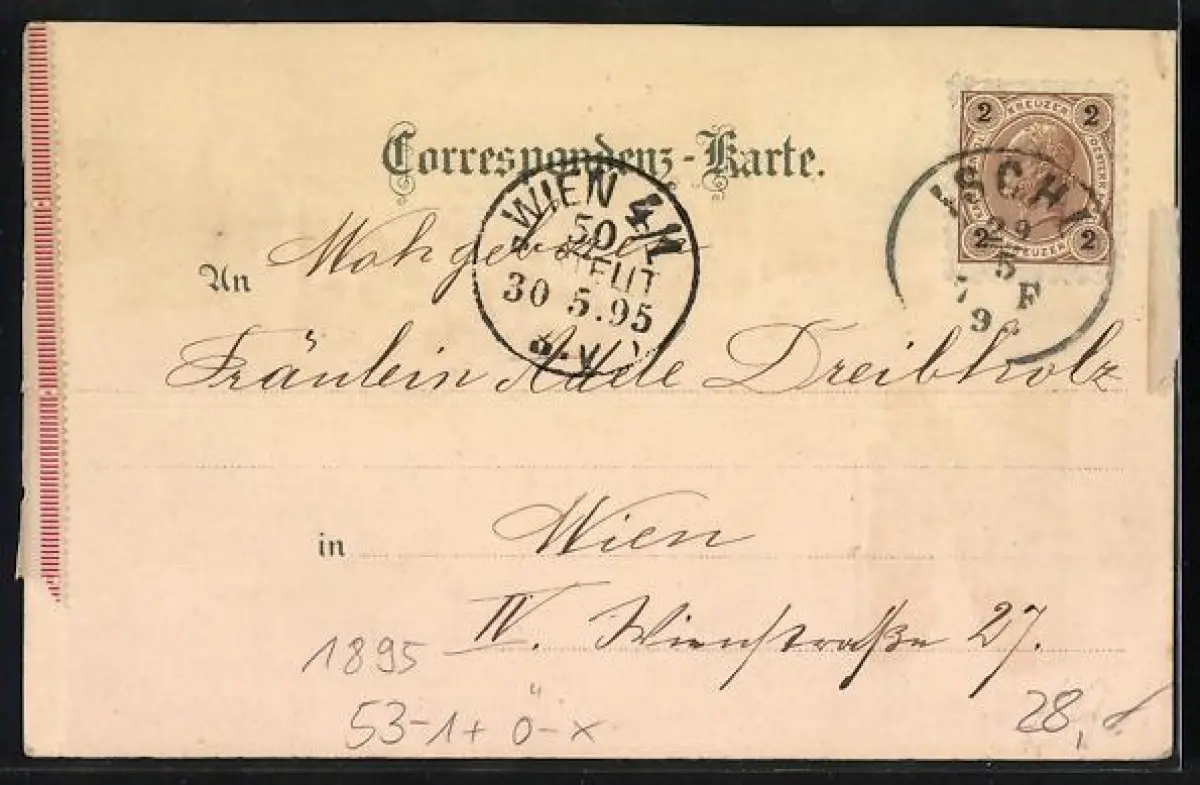 Correspondenz-Karte.
2 KREUZER 2
2 KREUZER 2
ISCHL
29
5
F
WIEN 4/1
50
BESTELLT
30 5.95
8.V.
An
Fräulein Adele Dreibholz
in Wien
IV. Wienstraße 27.
1895
53-1+ Ö-x
28,